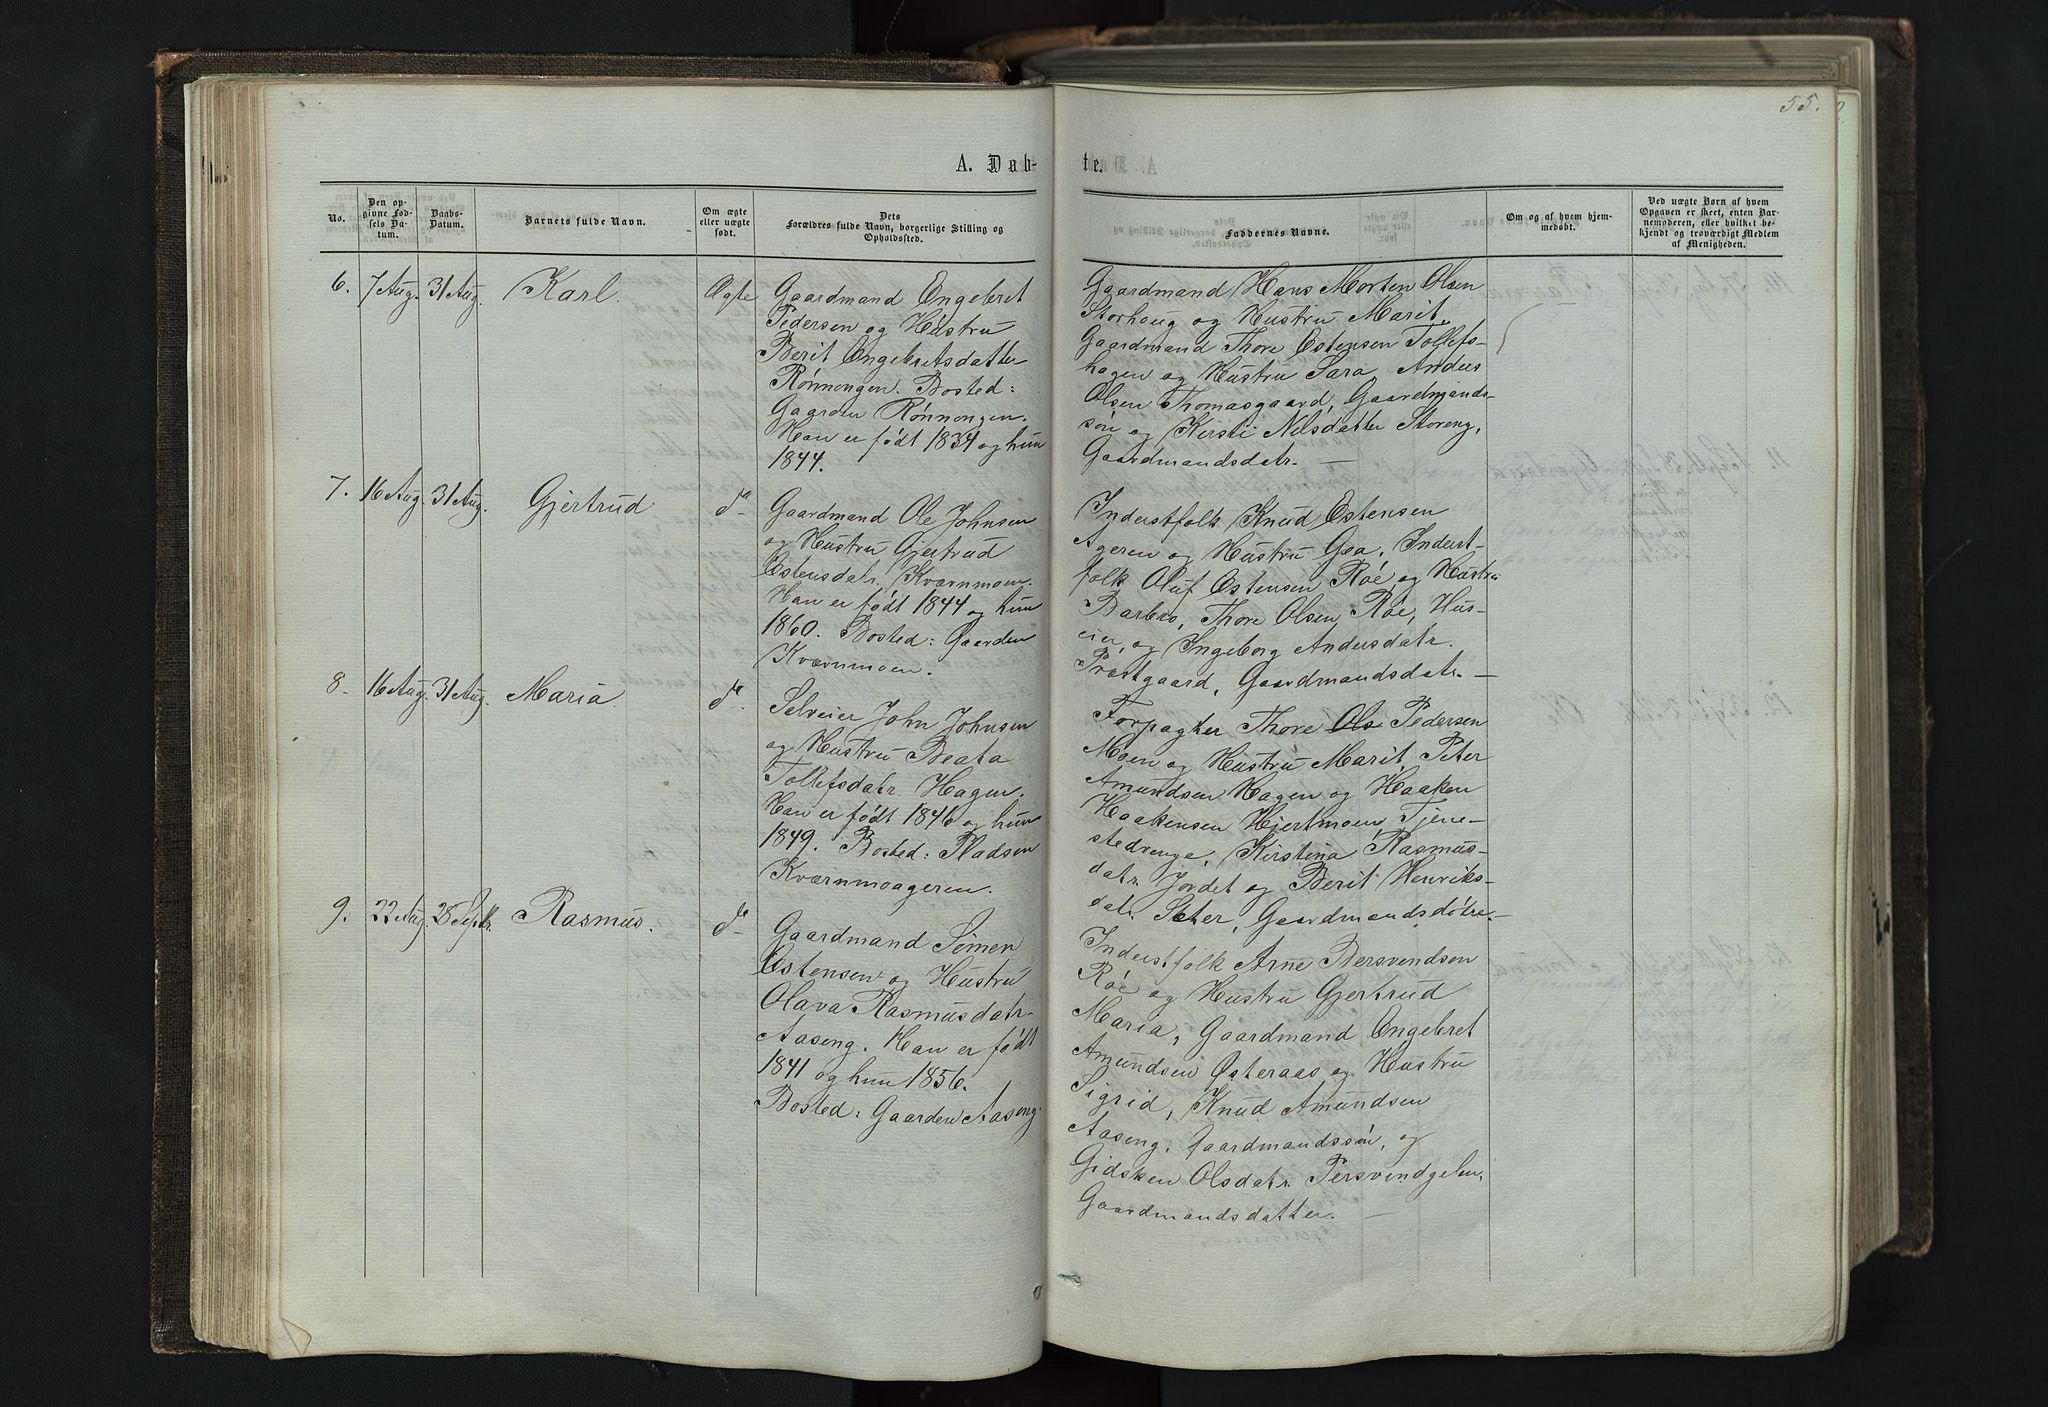 55.
A. Døb-
te.
No.
Den op-
givne Fød-
sels Da-
tum.
Daabs-
Datum.
Barnets fulde Navn.
Om ægte
eller uægte
født.
Dets
Forældres fulde Navn, borgerlige Stilling og
Opholdssted.
Faddernes Navne.
Om og af hvem hjem-
medøbt.
Ved uægte Børn af hvem
Opgaven er skeet, enten Bar-
nemoderen, eller hvilket be-
kjendt og troværdigt Medlem
af Menigheden.
6. 7 Aug. 31 Aug. Karl. Ægte
Gaardmand Engebret
Pedersen og Hustru
Berit Engebretsdatter
Rønnongen. Bosted:
Gaarden Rønnongen.
Han er født 1834 og hun
1844.
Gaardmand Hans Morten Olsen
Storhoug og Hustru Marit,
Gaardmand Thore Estensen Tollefs-
hagen og Hustru Sara, Anders
Olsen Thomasgaard, Gaardmands-
søn og Kirsti Nilsdatter Storeng,
Gaardmandsdatr. —
7. 16 Aug. 31 Aug. Gjertrud do
Gaardmand Ole Johnsen
og Hustru Gjertrud
Estensdatr. Kværnmoen.
Han er født 1844 og hun
1860. Bosted: Gaarden
Kværnmoen.
Inderstfolk Knud Estensen
Ageren og Hustru Gea, Inderst-
folk Oluf Estensen Røe og Hustru
Barbro, Thore Olsen Røe, Hus-
eier, og Ingeborg Andersdatr.
Præstgaard, Gaardmandsdatr. —
8. 16 Aug. 31 Aug. Maria. do
Selveier John Johnsen
og Hustru Beata
Tollefsdatr. Hagen.
Han er født 1846 og hun
1849. Bosted: Pladsen
Kværnmoageren.
Forpagter Thore Ols Pedersen
Moen og Hustru Marit, Peter
Amundsen Hagen og Haaken
Haakensen Hjertmoen, Tjene-
stedrenge, Kirstina Rasmus-
datr. Jordet og Berit Henriks-
datr. Sæter, Gaardmandsdøtre —
9. 22 Aug. 28 Septbr. Rasmus. do
Gaardmand Simen
Estensen og Hustru
Olava Rasmusdatr.
Aaseng. Han er født
1841 og hun 1856.
Bosted: Gaarden Aaseng.
Inderstfolk Arne Bersvendsen
Røe og Hustru Gjertrud
Maria, Gaardmand Engebret
Amundsen Østeraas og Hustru
Sigrid, Knud Amundsen
Aaseng, Gaardmandssøn, og
Gidsken Olsdatr. Persvendgelen,
Gaardmandsdatter. —